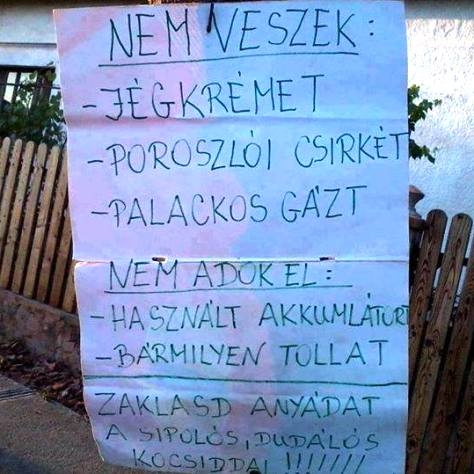 NEM VESZEK:
-JÉGKRÉMET
-POROSZLÓI CSIRKÉT
-PALACKOS GÁZT
NEM ADOK EL:
-HASZNÁLT AKKUMLÁTORT
-BÁRMILYEN TOLLAT
ZAKLASD ANYÁDAT
A SIPOLÓS, DUDÁLÓS
KOCSIDDAL !!!!!!!